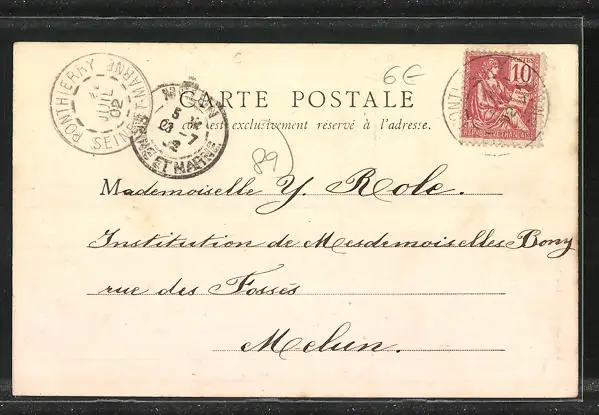 6€
CARTE POSTALE
est exclusivement réservé à l'adresse.
PONTHIERRY
JUIL
02
SEINE-ET-MARNE
MELUN
5
3 -7
02
SEINE ET MARNE
POSTES
10
RÉPUBLIQUE FRANÇAISE
89
Mademoiselle Y. Role.
Institution de Mesdemoiselles Bony
rue des Fossés
Melun.